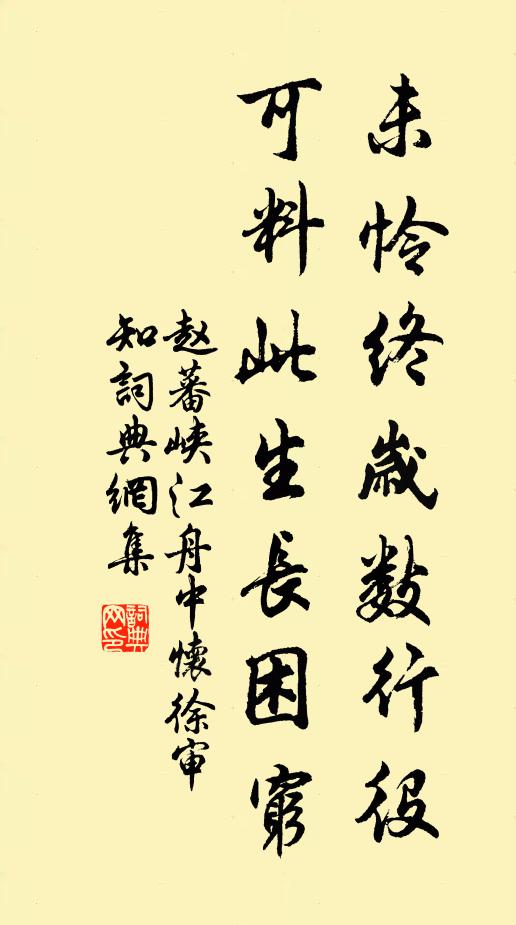 未怜终歲数行役
可料此生長困窮
赵蕃峽江舟中懷徐审
知詞典網集
詞典网印